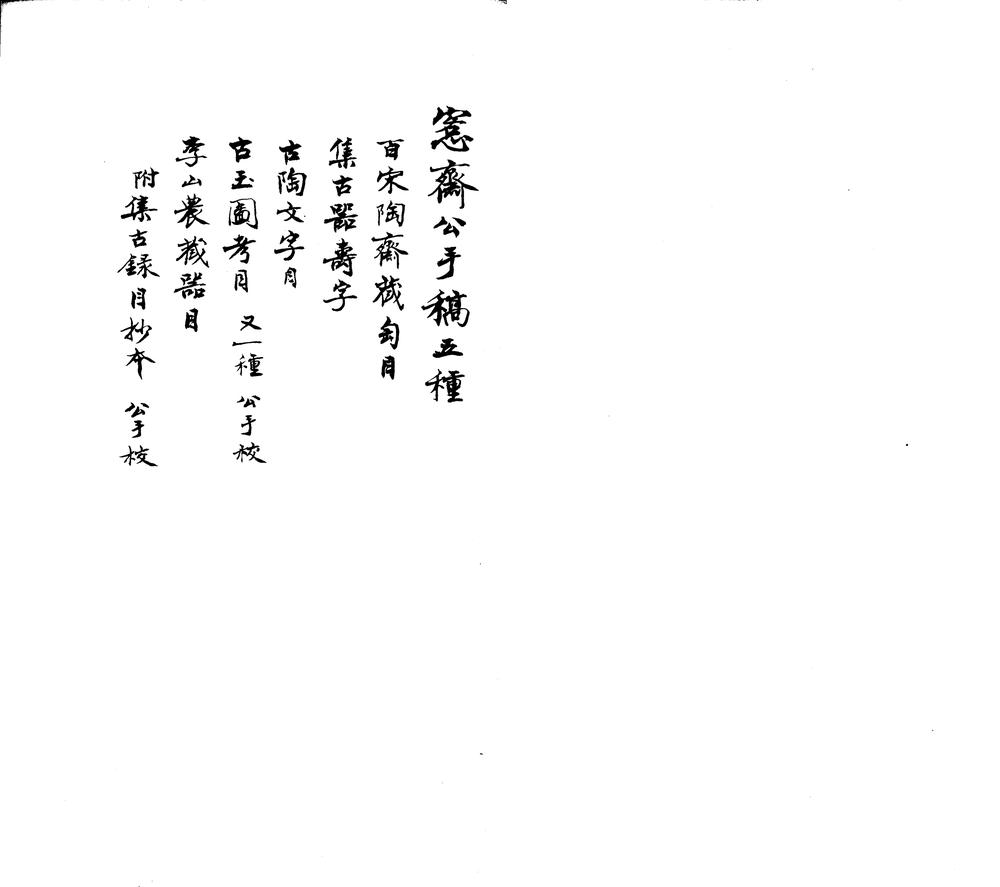 窓齋公手稿五種
百宋陶齋藏匋目
集古器壽字
古陶文字目
古玉圖考目 又一種 公手校
李山農藏器目
附集古録目抄本 公手校